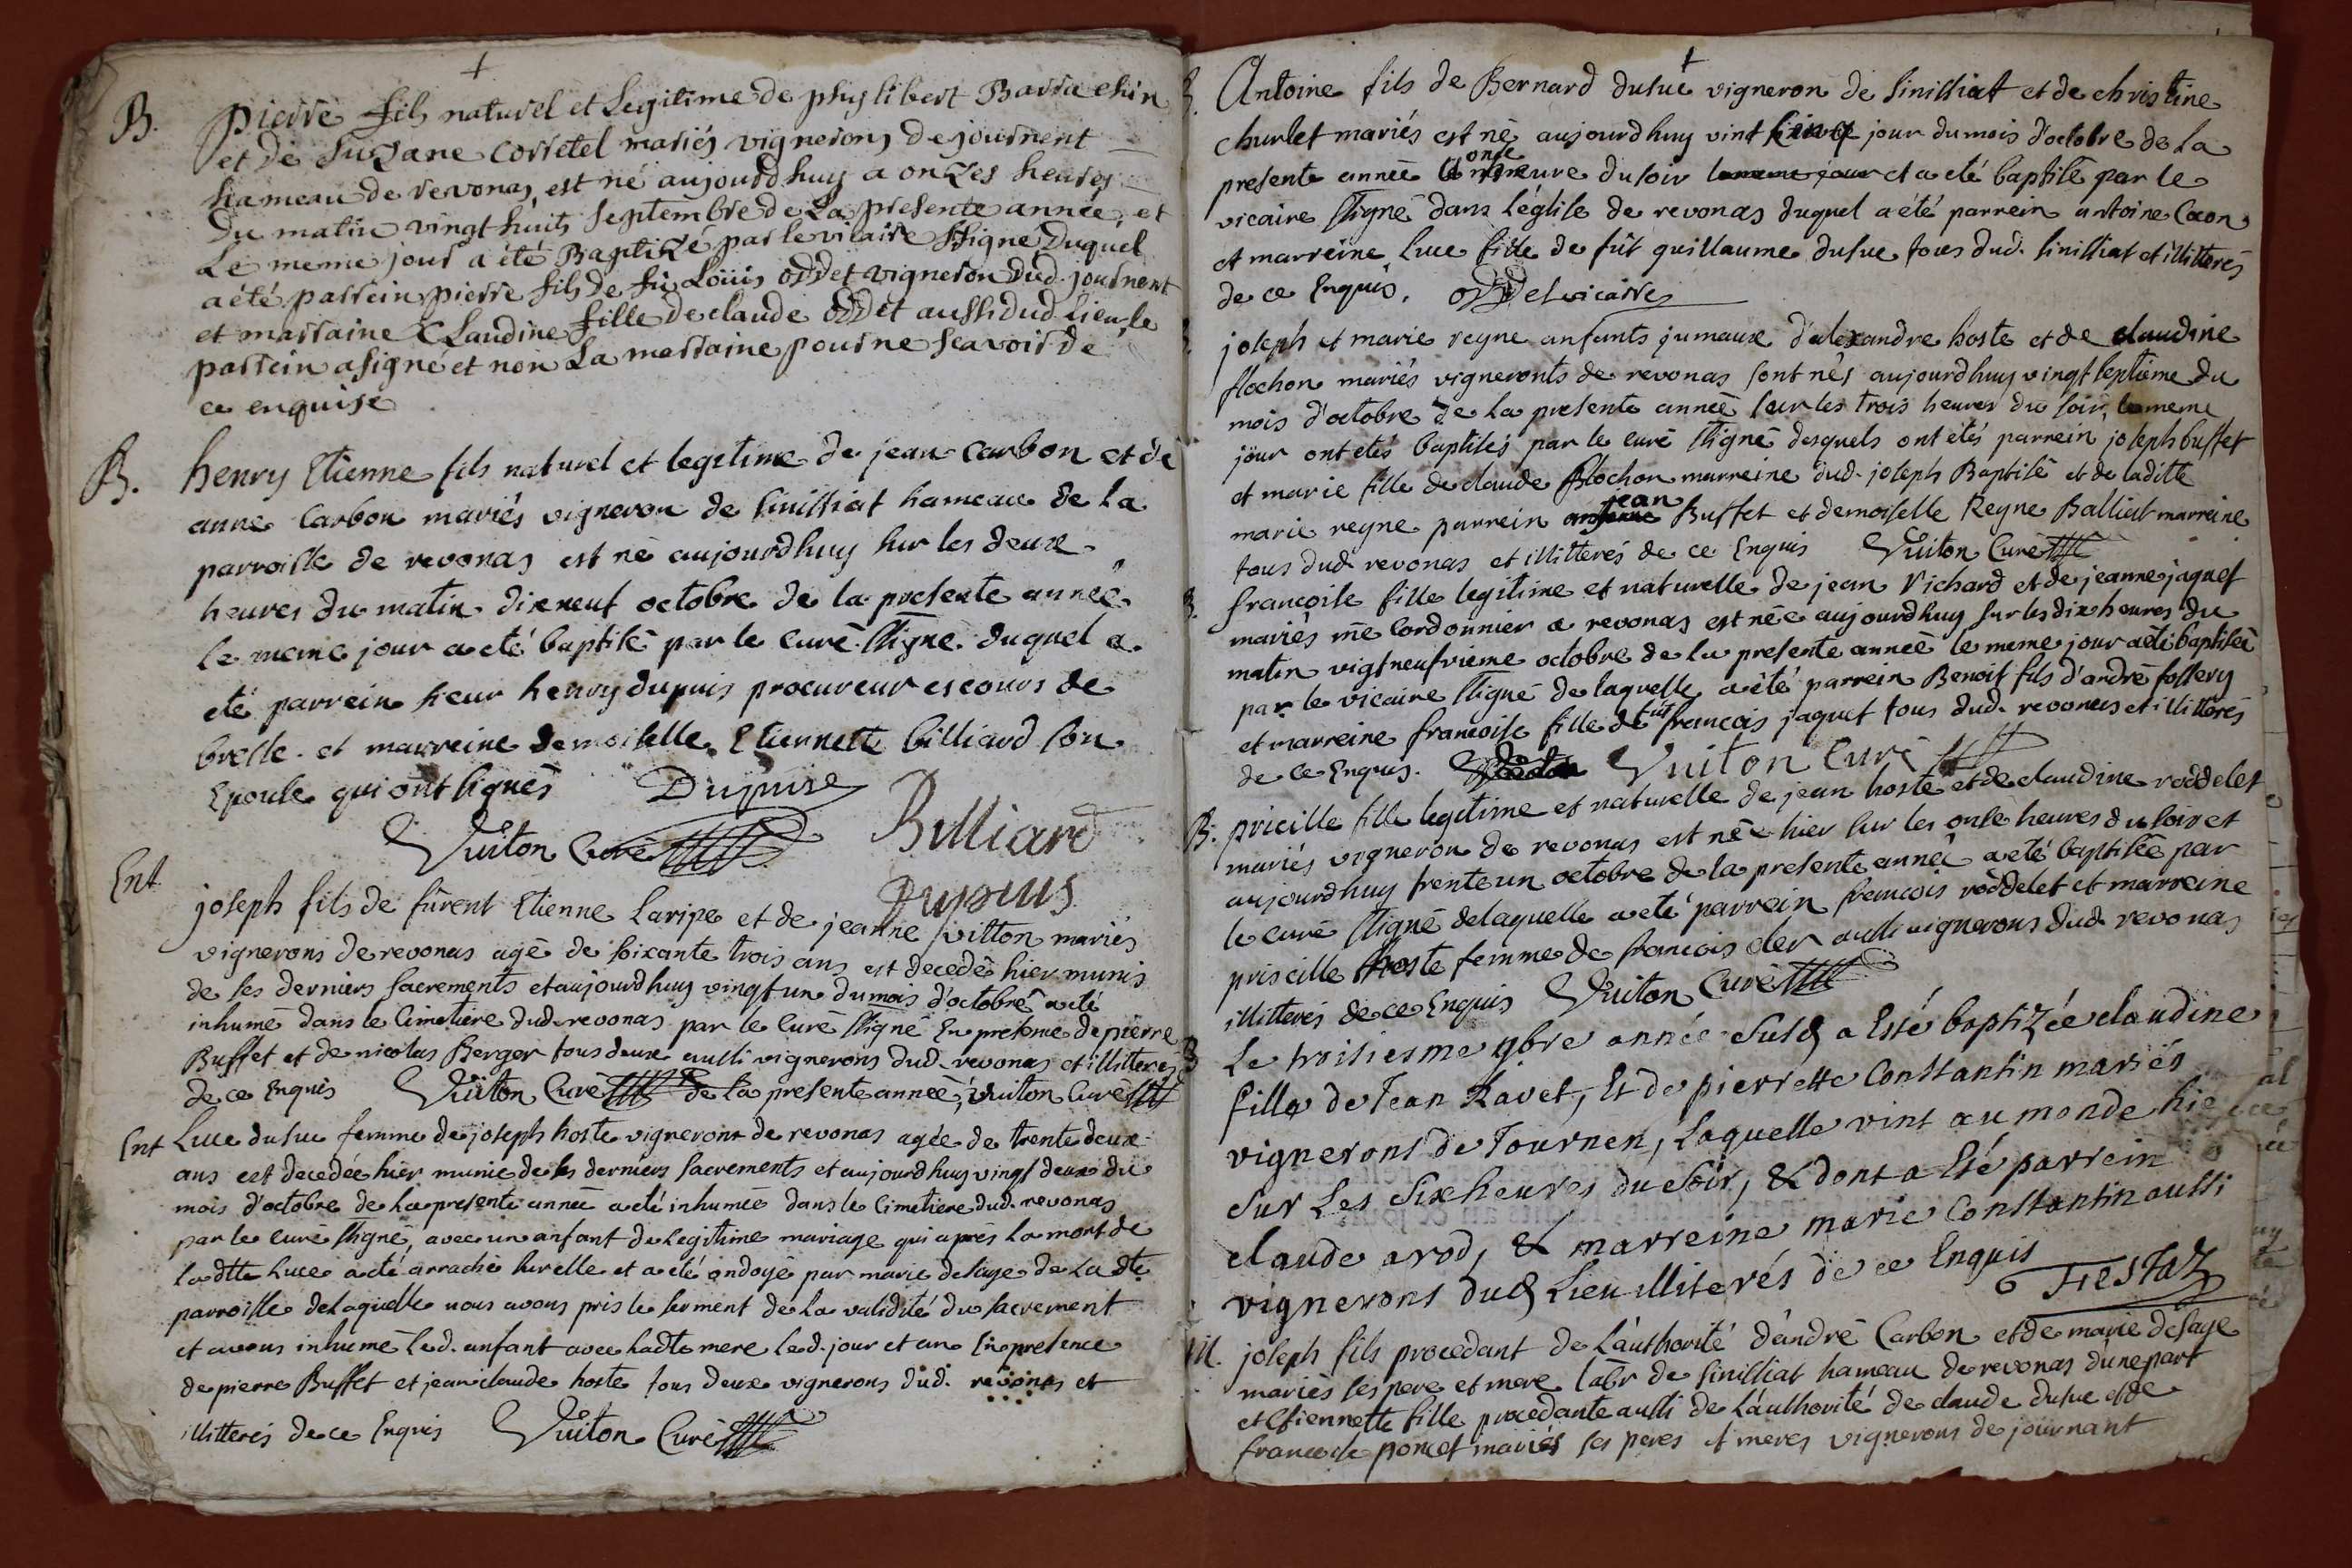 +
B. pierre fils naturel et Legitime de phylibert Barrachin
et de Suzane Corretel mariés vignerons de journent
hameau de revonas, est né aujourd huy a onZes heures
Du matin vingt huit Septembre de La presente année, et
Le meme jour a été BaptiZé par le vicaire ssigné Duquel
a été parrein pierre fils de fû Loüis oddet vigneron Dud. journent
et marraine Claudine fille de claude oddet aussi dud. Lieu, le
parrein a signé et non La marraine pour ne scavoir de
ce enquise
B. henry Etienne fils naturel et legitime de jean Carbon et de
anne Carbon mariés vigneron de sinissiat hameau de la
parroisse de revonas est né aujourdhuy sur les deux
heures du matin dixneuf octobre de la presente année
le meme jour a eté baptisé par le curé ssigné duquel a
eté parrein sieur henry dupuis procureur es cours de
bresse et marreine demoiselle Etiennette billiard son
Epouse qui ont signés Dupuise
Vuiton Curé Billiard
Dupuis
Ent. joseph fils de fûrent Etienne Laripe et de jeanne vitton mariés
vignerons de revonas agé de soixante trois ans est decedé hier munis
de ses derniers sacrements et aujourdhuy vingt un du mois d'octobre a eté
inhumé dans le Cimetiere dud. revonas par le Curé ssigné En presence de pierre
Buffet et de nicolas Berger tous deux aussi vignerons dud. revonas et illiterés
de ce Enquis Vuiton Curé de la presente année, vuiton Curé
Ent Luce dusuc femme de joseph hoste vigneront de revonas agée de trente deux
ans est decedée hier munie de ses derniers sacrements et aujourdhuy vingt deux du
mois d'octobre de la presente année a eté inhumée dans le Cimetiere dud. revonas
par le curé ssigné, avec un anfant de legitime mariage qui aprés la mort de
ladtte Luce a eté arraché sur elle et a eté ondoyé par marie desaye de La dte
parroisse de Laquelle nous avons pris le serment de la validité du sacrement
et avons inhumé led. anfant avec ladte mere led. jour et an En presence
de pierre Buffet et jean claude hoste tous deux vignerons dud. revonas et
illitterés de ce Enquis Vuiton Curé
+
B. Antoine fils de Bernard dusuc vigneron de sinissiat et de christine
churlet mariés est né aujourdhuy vint jour du mois d'octobre de la
presente année onse heure du soir le meme jour et a eté baptisé par le
vicaire ssigné dans l'église de revonas duquel a été parrein antoine Caon
et marreine luce fille de fût guillaume dusuc tous dud. sinissiat et illitterés
de ce Enquis, oddet vicaire
joseph et marie reyne anfants jumaux d'alexandre hoste et de claudine
flochon mariés vigneronts de revonas sont nés aujourdhuy vingt septieme du
mois d'octobre de la presente année sur les trois heures du soir, le meme
jour ont etés baptisés par le curé ssigné desquels ont etés parrein joseph buffet
et marie fille de claude flochon marreine dud. joseph Baptisé et de laditte
marie reyne parrein jean Buffet et demoiselle Reyne Balliat marreine
tous dud. revonas et illitterés de ce Enquis Vuiton Curé
B. francoise fille legitime et naturelle de jean Richard et de jeanne jaquet
mariés me Cordonnier a revonas est née aujourdhuy sur les dix heures du
matin vigt neufvieme octobre de la presente année le meme jour a été baptisée
par le vicaire ssigné de laquelle a été parrein Benoit fils d'andré follery
et marreine francoise fille de fût francois jaquet tous dud. revonas et illitterés
de ce Enquis. Vuiton Curé
B. pricille fille legitime et naturelle de jean hoste et de claudine roddelet
mariés vigneron de revonas est née hier sur les onse heures du soir et
aujourdhuy trente un octobre de la presente année a eté baptisée par
le curé ssigné de laquelle a eté parrein francois roddelet et marreine
priscille hoste femme de francois cler aussi vignerons dud. revonas
illitterés de ce Enquis Vuiton Curé
B Le troisiesme 9bre année susd a Esté baptiZée claudine
fille de Jean Ravet, Et de pierrette Constantin mariés
vignerons de Journen, Laquelle vint au monde hie
sur Les sixheures du soir, & dont a Esté parrein
claude arod, & marreine marie Constantin aussi
vignerons dud Lieu illiterés de ce Enquis
Festaz
M. joseph fils procedant de L'authorité d'andré Carbon et de marie desaye
mariés ses pere et mere labr de sinissiat hameau de revonas d'une part
et Etiennette fille procedante aussi de L'authorité de claude dusuc et de
francoise poncet mariés ses peres et meres vignerons de journant